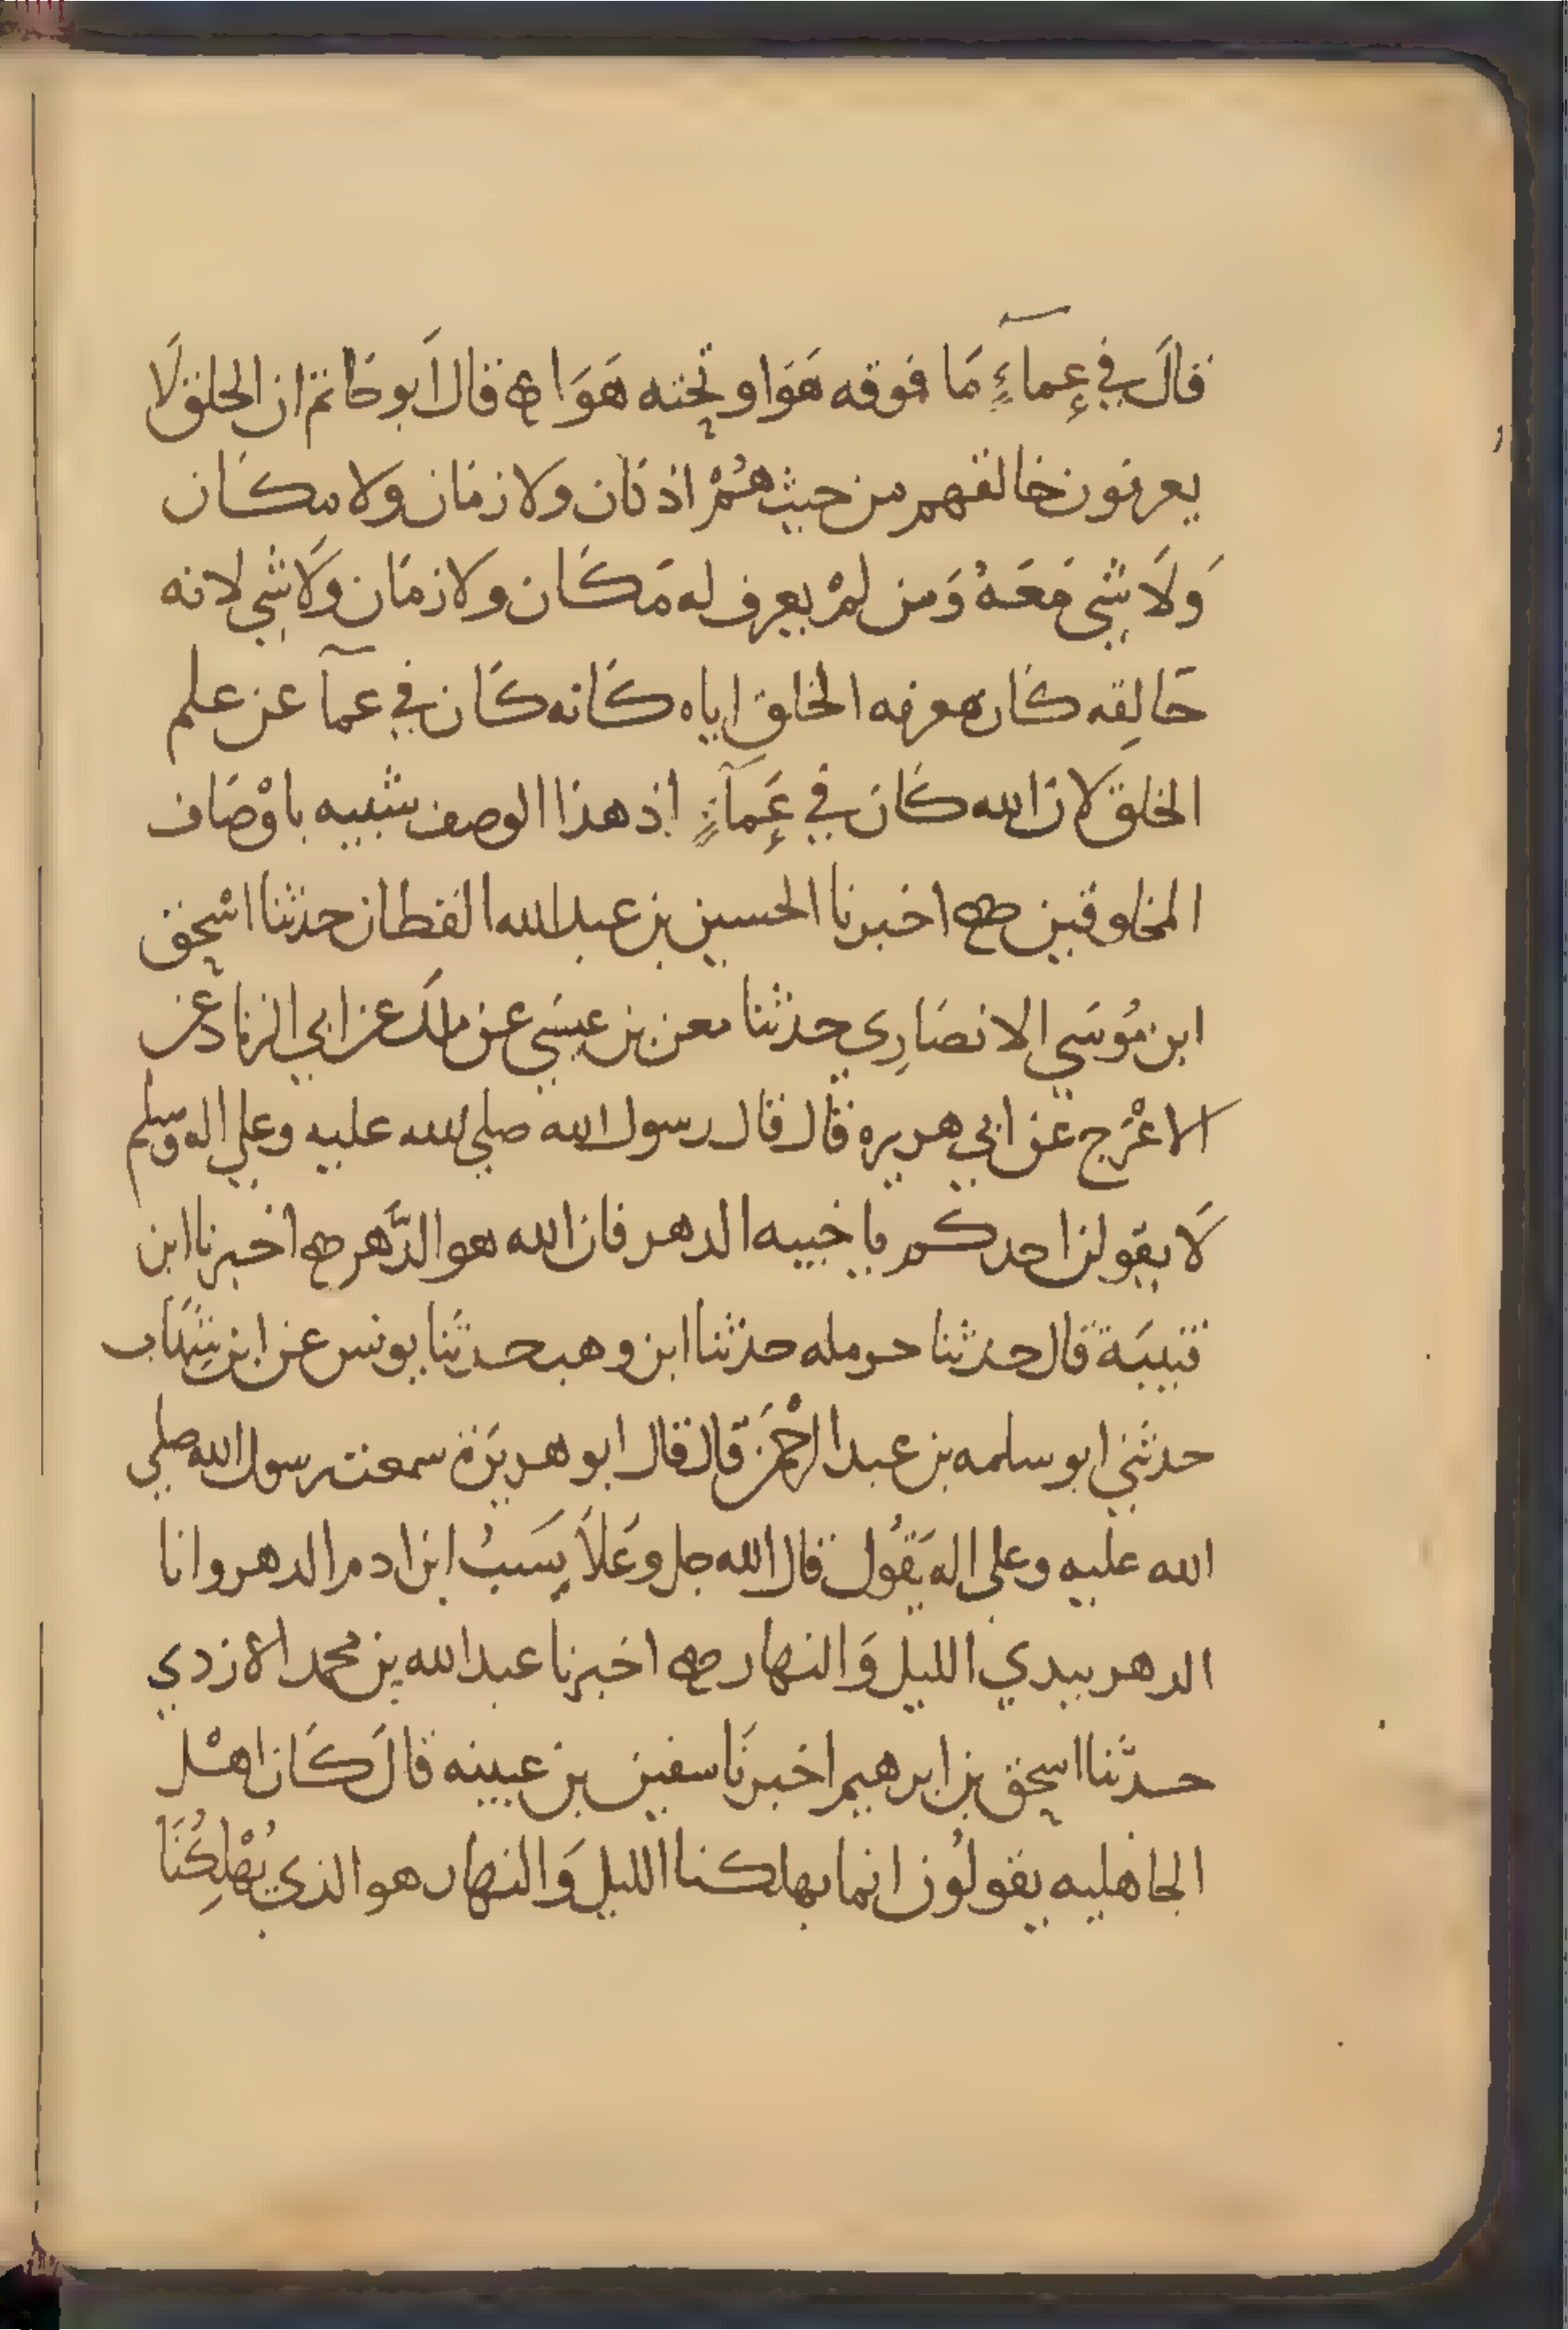 قالَ في عِماءٍ مَا فوقه هَوَا و تحته هَوَا ه قال اَبو حَاتم ان الخلق لَا
يعرفون خالقهم من حيث هُمْ اذ كان ولا زمَان ولا مكَان
وَلَا شي مَعَهُ وَمن لمْ يعرف له مَكَان ولا زمَان وَلَا شي لانه
خَالِقه كَان معرفه الخلقِ اياه كَانه كَان في عمآ عن علم
الخلق لا ان الله كَان في عَمآءٍ اِذ هذا الوصف شبيه باوْصَاف
المخلوقين ه اخبرنا الحسين بن عبد الله القطان حدثنا اسْحق
ابن مُوسَي الانصَارِي حدثنا معن بن عيسَي عن ملك عن ابي الزناد عن
الاعْرَج عن ابي هريره قال قال رسول الله صلي الله عليه وعلي اله وسلم
لَا يقولن احدكم يا خيبه الدهر فان الله هو الدَّهر ه اخبرنا ابن
قتيبَة قال حدثنا حرمله حدثنا ابن وهب حدثنا يونس عن ابن شِهَاب
حدثني ابو سلمه بن عبد الرحْمَن قال قال ابو هريرَة سمعت رسول الله صلي
الله عليه وعلي اله يَقُول قال الله جل وعَلَا يَسَبُ ابن ادم الدهر وانا
الدهر بيدي الليل وَالنهار ه اخبرنا عبد الله بن محمد الازدي
حدَّثنا اسحق بن ابرهيم اخبرنَا سفين بن عيينه قالَ كَان اهْل
الجاهليه يقولُون انما يهلكنا الليل وَالنهار هو الذي يُهْلِكُنَا